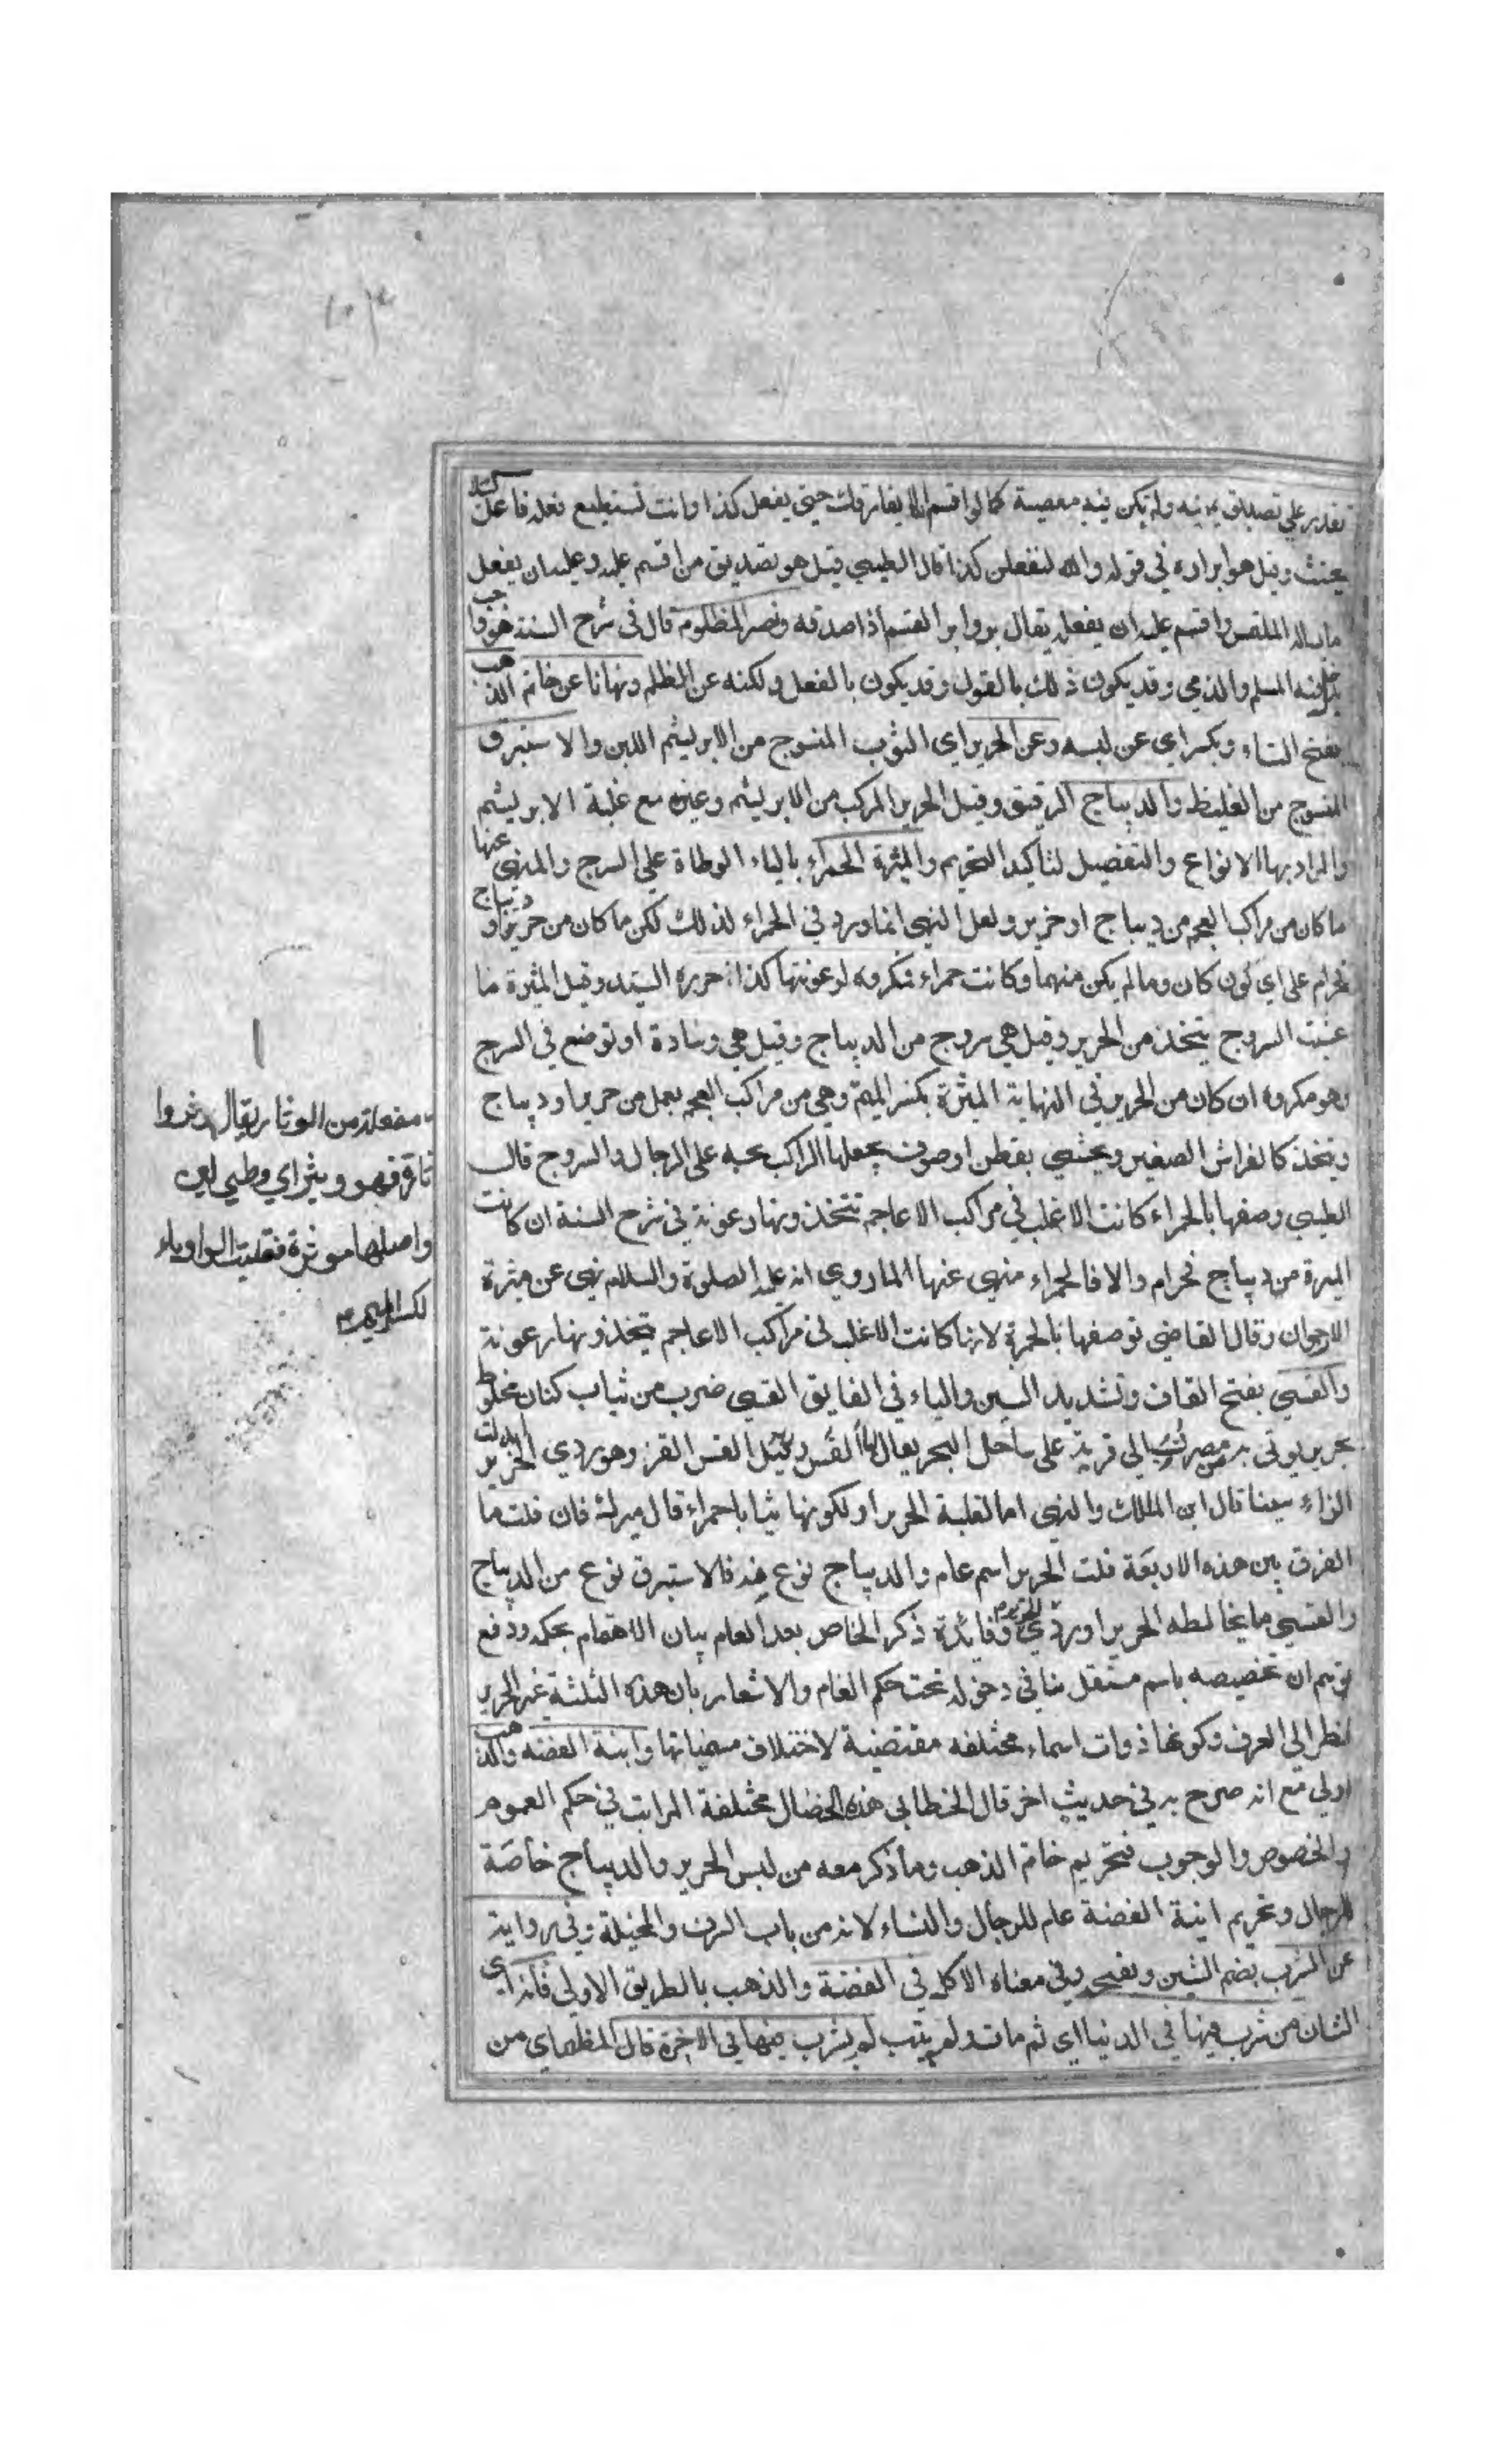 تقدر على تصديق يمينه ولم يكن فيه معصية كما لو اقسم ان لا يفارقك حتى يفعل كذا وانت تستطيع فعله فافعل كيلا
يحنث وقيل هو ابراره في قوله والله لتفعلن كذا قال الطيبي قيل هو تصديق من اقسم عليه وعليه ان يفعل
ما ساله الملتمس واقسم عليه ان يفعله يقال بر وابر القسم اذا صدقه ونصر المظلوم قال في شرح السنة هو واجب
يدخل فيه المسلم والذمي وقد يكون ذلك بالقول وقد يكون بالفعل وبكفه عن الظلم ونهانا عن خاتم الذهب
بفتح التاء وبكسر اي عن لبسه وعن الحرير اي الثوب المنسوج من الابريشم اللين والاستبرق
المنسوج من الغليظ والديباج الرقيق وقيل الحرير المركب من الابريشم وغيره مع غلبة الابريشم
والمراد بها الانواع والتفصيل لتاكيد التحريم والميثرة الحمراء بالياء الوطاة على السرج والمنهي عنها
ما كان من مراكب العجم من ديباج او حرير ولعل النهي انما ورد في الحمراء لذلك لكن ما كان من حرير او ديباج
فحرام على اي لون كان وما لم يكن منهما وكانت حمراء فمكروه لرعونتها كذا حرره السيد وقيل الميثرة ما
غشيت السروج يتخذ من الحرير وقيل هي سروج من الديباج وقيل هي وسادة او توضع في السرج
وهو مكروه ان كان من الحرير في النهاية الميثرة بكسر الميم وهي من مراكب العجم يعمل من حرير او ديباج
ويتخذ كالفراش الصغير ويحشى بقطن او صوف يجعلها الراكب تحته على الرحال والسروج قال
الطيبي وصفها بالحمراء كانت الاغلب في مراكب الاعاجم تتخذونها رعونة في شرح السنة ان كانت
الميثرة من ديباج فحرام والا فالحمراء منهي عنها لما روي انه عليه الصلوة والسلام نهى عن ميثرة
الارجوان وقال القاضي توصفها بالحمرة لانها كانت الاغلب في مراكب الاعاجم يتخذونها رعونة
والقسي بفتح القاف وتشديد السين والياء في الفايق القسي ضرب من ثياب كتان مخلوط
بحرير يوتى به من مصر نسب الى قرية على ساحل البحر يقال لها القس وقيل القس القز وهو ردي الحرير ابدلت
الزاء سينا قال ابن الملك والنهي اما لغلبة الحرير او لكونها ثيابا حمراء قال ميرك فان قلت ما
الفرق بين هذه الاربعة قلت الحرير اسم عام والديباج نوع منه فالاستبرق نوع من الديباج
والقسي ما يخالطه الحرير او ردي الحرير وفايدة ذكر الخاص بعد العام بيان الاهتمام بحكمه ودفع
توهم ان تخصيصه باسم مستقل ينافي دخوله تحت حكم العام والاشعار بان هذه الثلثة غير الحرير
نظر الى العرف وكونها ذوات اسماء مختلفه مقتضية لاختلاف مسمياتها وانية الفضة والذهب
اولى مع انه صرح به في حديث اخر قال الخطابي هذه الخصال مختلفة المراتب في حكم العموم
والخصوص والوجوب فتحريم خاتم الذهب وما ذكر معه من لبس الحرير والديباج خاصة
للرجال وتحريم انية الفضة عام للرجال والنساء لانه من باب السرف والمخيلة وفي رواية
عن الشرب بضم الشين وبفتحه وفي معناه الاكل في الفضة والذهب بالطريق الاولى فانه اي
الشان من شرب فيها في الدنيا اي ثم مات ولم يتب لم يشرب فيها في الاخرة قال المظهر اي من
مفعلة من الوثار يقال وثروا
ثارة فهو وثير اي وطي لين
واصلها موثرة فقلبت الواو ياء
لكسر الميم